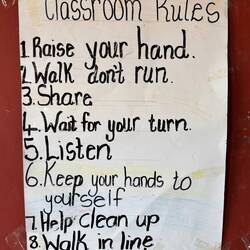 Classroom Rules
1. Raise your hand.
2. Walk don't run.
3. Share
4. Wait for your turn.
5. Listen
6. Keep your hands to
yourself
7. Help clean up
8. Walk in line